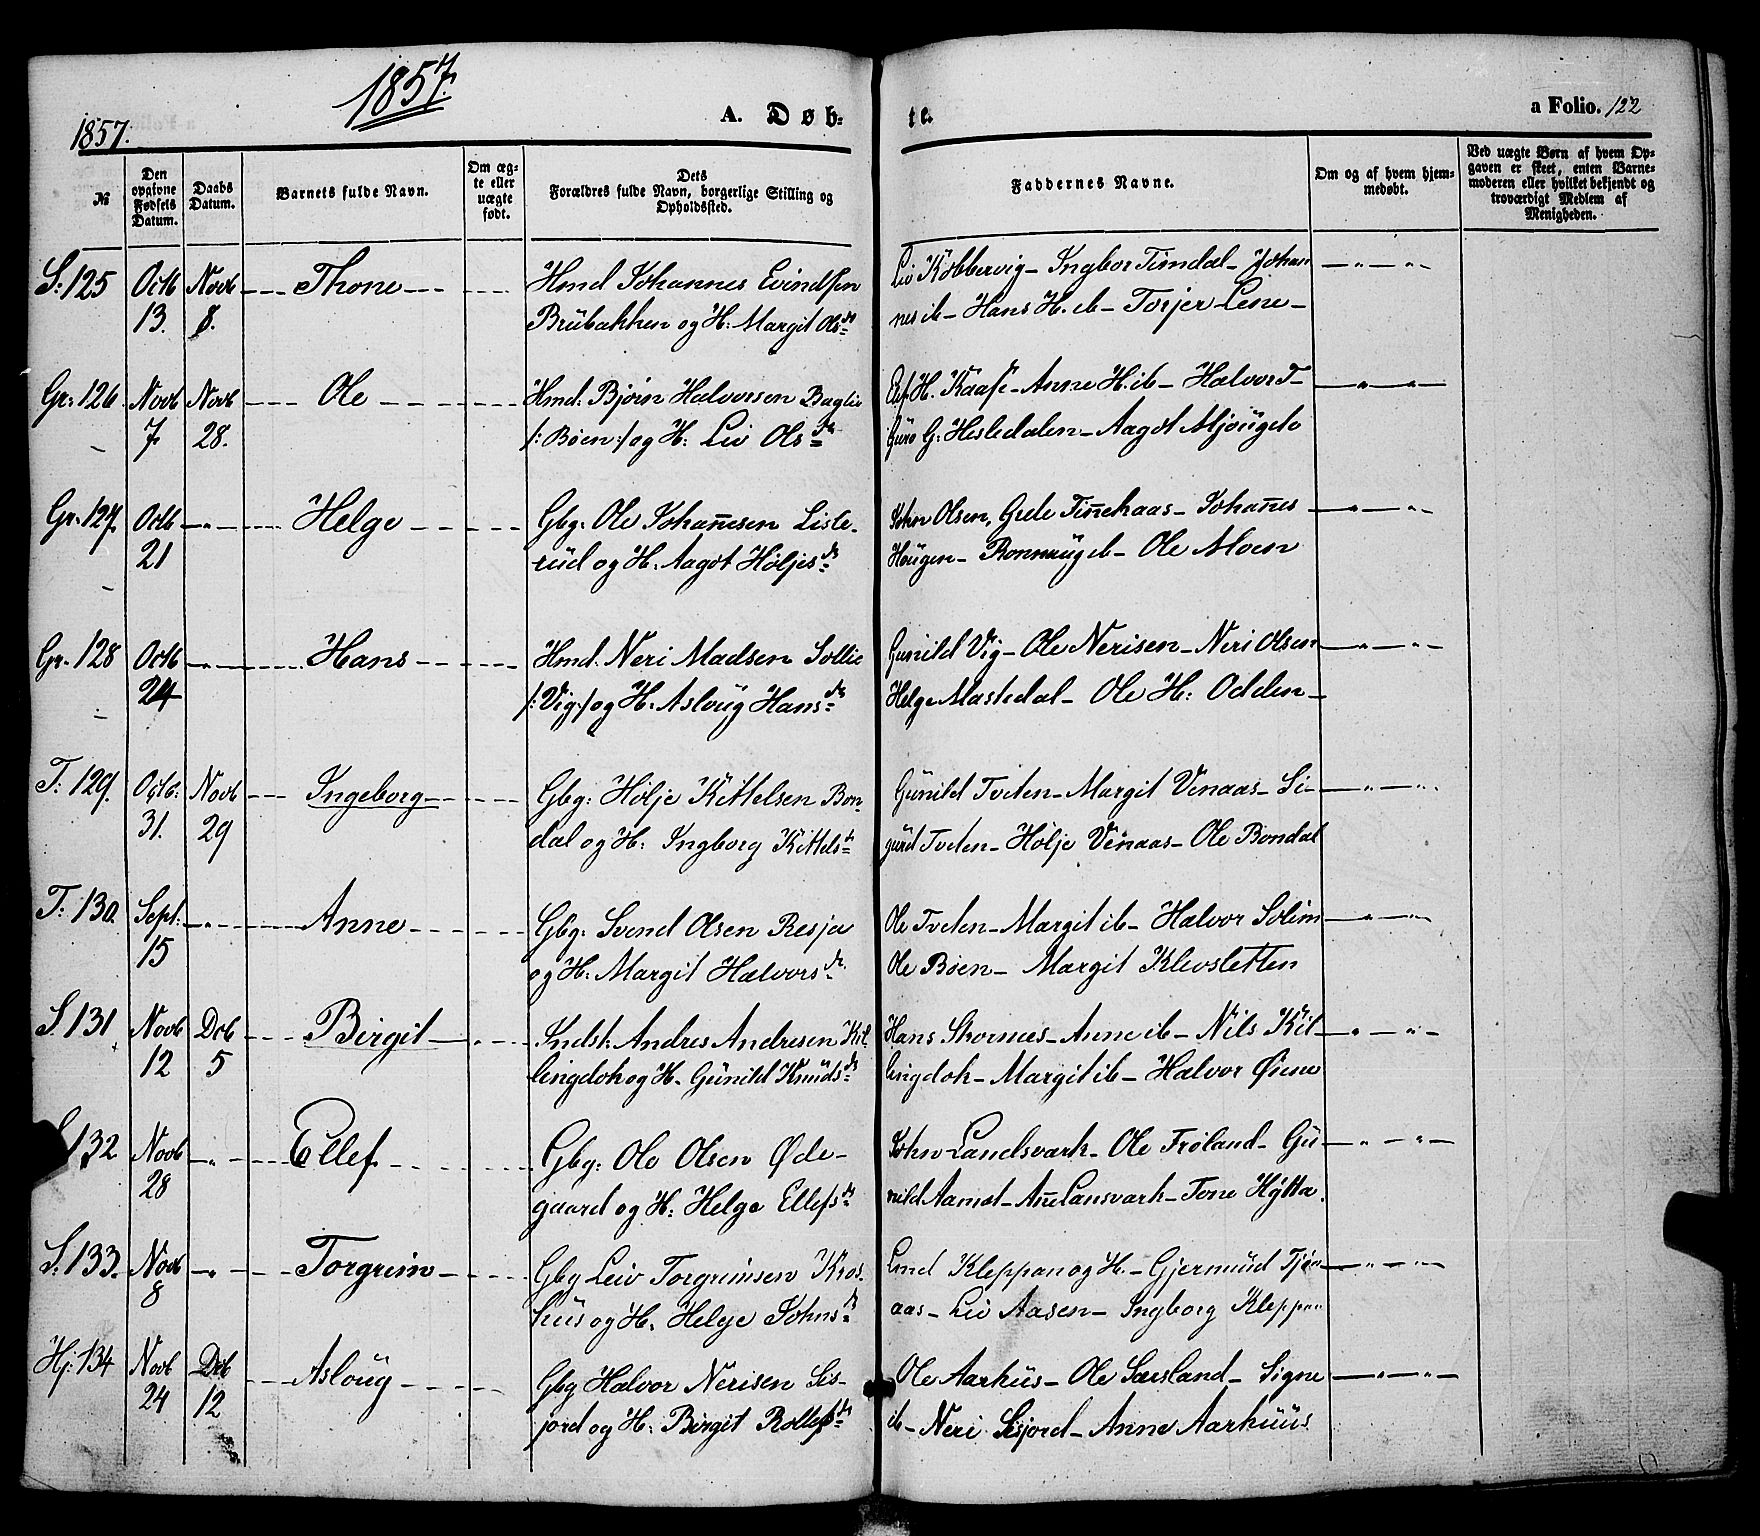 1857.
1857.
A. Døb- te.
a Folio. 122
№
Den opgivne Fødsels Datum.
Daabs Datum.
Barnets fulde Navn.
Om ægte eller uægte født.
Dets Forældres fulde Navn, borgerlige Stilling og Opholdssted.
Faddernes Navne.
Om og af hvem hjemmedøbt.
Ved uægte Børn af hvem Opgaven er skeet, enten Barnemoderen eller hvilket bekjendt og troværdigt Medlem af Menigheden.
S: 125 Octb 13. Novb 8. Thone
Hmd Johannes Evindsen
Brübakken og H: Margit Olsdr
Liv Kobbervig - Ingbor Timdal - Johan
nes ib - Hans H. ib - Torjer Lene -
Gr: 126 Novb 7. Novb 28. Ole
Hmd: Bjørn Halvorsen Baglie
/: Bøen :/ og H: Liv Olsdr
H. Kaase - Anne H. ib - Halvor T -
Güro G: Hesledalen - Aagot Mjøugele
Gr: 127 Octb 21 Helge
Gbg: Ole Johannesen Liste-
rüd og H. Aagot Høljesdr
John Olsen, Grete Finnekaas - Johannes
Haugen - Ronnaug ib - Ole Moen
Gr. 128 Octb 24 Hans
Hmd. Neri Madsen Sollie
/: Vig :/ og H. Asloüg Hansdr
Gunild Vig - Ole Nerisen - Neri Olsen
Helge Mastedal - Ole H: Odden -
T: 129. Octb: 31. Novb 29 Ingeborg
Gbg: Hølje Kittelsen Bon-
dal og H: Ingborg Kittelsdr
Günild Tveten - Margit Venaas - Si-
gürd Tveten - Hølje Venaas - Ole Bondal
T: 130. Sept: 15 Anne
Gbg: Svend Olsen Resja
og H: Margit Halvorsdr
Ole Tveten - Margit ib - Halvor Solim
Ole Bøen - Margit Klevsletten
S. 131 Novb 12 Dcb 5 Birgit
Indst: Andres Andresen Kil
lingdok og H. Günild Knüdsdr
Hans Skornæs - Anne ib - Nils Kil
lingdok - Margit ib - Halvor Øiene
S. 132 Novb 28 Ellef
Gbg: Ole Olsen Øde-
gaard og H: Helge Ellefsdr
John Landsvark - Ole Frøland - Gü
nild Aamot - Anne Lansvark - Tone Hÿtta.
S: 133. Novb 8 Torgrim
Gbg Leiv Torgrimsen Kros-
hüs og H. Helge Johnsdr
Lend Kleppan og H - Gjermünd Tjøn
aas - Liv Aasen - Ingborg Kleppen
Hj: 134 Novb 24 Dcb 12 Asloüg
Gbg Halvor Nerisen Sis-
jord og H: Birgit Rollefsdr
Ole Aarhüs - Ole Sarsland - Signe
ib - Neri Sisjord - Anne Aarhüüs